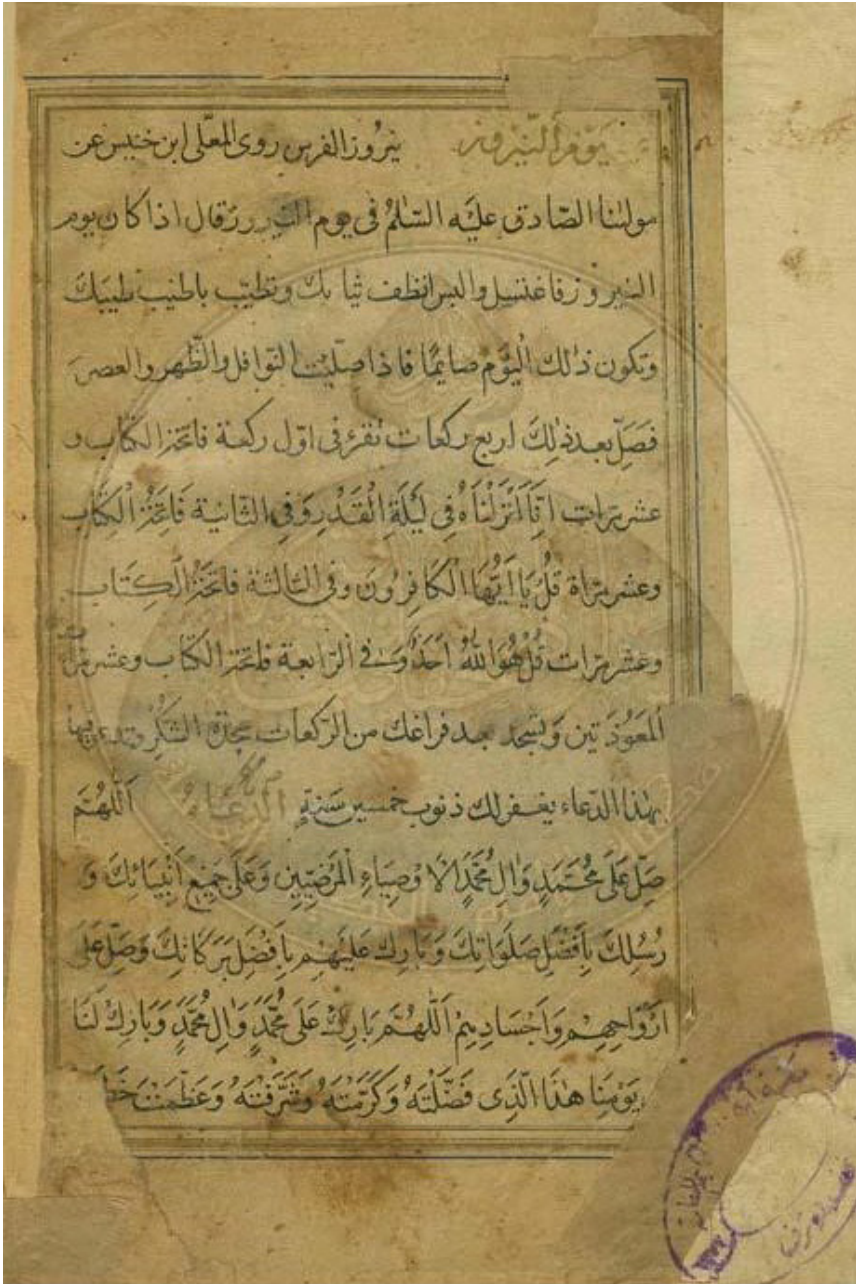 يوم النيروز نيروز الفرس روى المعلّى ابن خنيس عن
مولٰنا الصّادق عليه السّلٰمُ فى يوم النيروز قال اذا كان يوم
النيروز فاغتسل والبس انظف ثيابك وتطيّب باطيب طيبك
وتكون ذٰلك اليَوْم صايمًا فاذا صلّيت النوافل والظّهر والعصرَ
فصَلّ بعد ذٰلِكَ اربع ركعات تقرء فى اوّل ركعة فاتحة الكتاب و
عشر مرّات اِنّا اَنْزَلْنَاهُ فِى لَيْلَةِ الْقَدْرِ وَفِى الثانية فَاتِحَةُ الْكِتَابِ
وعشر مرّاة قُلْ يَا اَيُّهَا الْكَافِرُونَ وفى الثالثة فاتحَةُ الْكِتَاب
وعشر مرّات قُلْ هُوَ اللّٰهُ اَحَدٌ وَفى الرّابعة فاتحة الكتاب وعشر مرّات
اَلْمَعُوذَتين وَتسجد بعد فراغك من الرّكعات سجدة الشكر وتدعو فيها
بهٰذا الدّعاء يغفر لك ذنوب خمسين سَنةٍ الدّعاء اَللّٰهُمَّ
صَلِّ عَلٰى مُحَمَّدٍ وَاٰلِ مُحَمَّدٍ الْاَوْصِيَاءِ الْمَرْضِيّينَ وَعَلٰى جَمِيعِ اَنْبِيَائِكَ وَ
رُسُلِكَ بِاَفْضَلِ صَلَوَاتِكَ وَبَارِكْ عَلَيْهِمْ بِاَفْضَلِ بَرَكَاتِكَ وَصَلِّ عَلٰى
اَرْوَاحِهِمْ وَاَجْسَادِهِمْ اَللّٰهُمَّ بَارِكْ عَلٰى مُحَمَّدٍ وَاٰلِ مُحَمَّدٍ وَبَارِكْ لَنَا
يَوْمِنَا هٰذَا الَّذِى فَضَّلْتَهُ وَكَرَّمْتَهُ وَشَرَّفْتَهُ وَعَظَّمْتَ